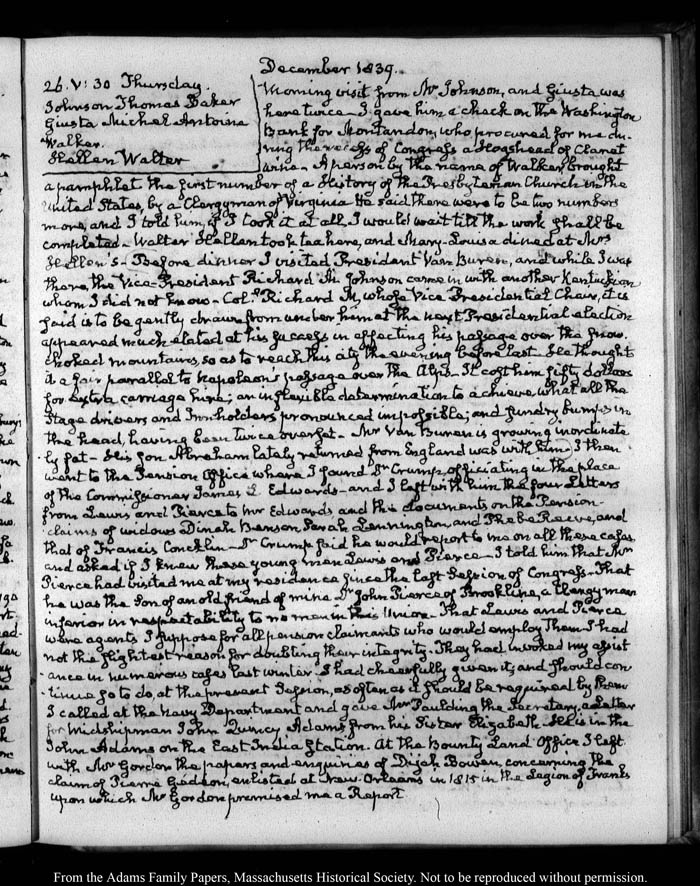 December 1839.
26. V: 30 Thursday.
Johnson Thomas Baker
Giusta Michel Antoine
Walker.
Hellen Walter
Morning visit from Mr Johnson, and Giusta was
here twice — I gave him a check on the Washington
Bank for Montandon, who procured for me du-
ring the recess of Congress a Hogshead of Claret
wine — A person by the name of Walker brought
a pamphlet the first number of a History of the Presbyterian Church in the
United States, by a Clergyman of Virginia He said there were to be two numbers
more, and I told him, if I took it at all I would wait till the work shall be
completed — Walter Hellen took tea here, and Mary-Louisa dined at Mrs
Hellen's — Before dinner I visited President Van Buren, and while I was
there, the Vice-President Richard M. Johnson came in with another Kentuckian
whom I did not know — Col. Richard M, whose Vice Presidential Chair, it is
said is to be gently drawn from under him at the next Presidential election
appeared much elated at his success in effecting his passage over the snow-
choked mountains, so as to reach this city the evening before last — He thought
it a fair parallel to Napoleon's passage over the Alps — It cost him fifty dollars
for extra carriage hire; an inflexible determination to achieve what all the
Stage drivers and Innholders pronounced impossible; and sundry bumps in
the head, having been twice overset — Mr Van Buren is growing inordinate-
ly fat — His son Abraham lately returned from England was with him; I then
went to the Pension Office where I found Dr Crump, officiating in the place
of the Commissioner James L Edwards — and I left with him the four Letters
from Lewis and Pierce to Mr Edwards and the documents on the Pension-
claims of widows Dinah Benson, Sarah Lennington, and Phebe Reeve, and
that of Francis Concklin — Dr Crump said he would report to me on all these cases
and asked if I knew these young men Lewis and Pierce — I told him that Mr
Pierce had visited me at my residence since the last Session of Congress — That
he was the son of an old friend of mine Dr John Pierce of Brookline, a Clergyman
inferior in respectability to no man in this Union — That Lewis and Pierce
were agents I suppose for all pension claimants who would employ them — I had
not the slightest reason for doubting their integrity. They had invoked my assist-
ance in numerous cases last winter. I had cheerfully given it, and should con-
tinue so to do, at the present Session, as often as it should be required by them
I called at the Navy Department and gave Mr Paulding the Secretary, a Letter
for Midshipman John Quincy Adams, from his Sister Elizabeth. He is in the
John Adams on the East India Station. At the Bounty Land Office I left
with Mr Gordon the papers and enquiries of Dijah Bowen, concerning the
claim of Pierre Gedeon, enlisted at New Orleans in 1815 in the Legion of Franks
upon which Mr Gordon promised me a Report
From the Adams Family Papers, Massachusetts Historical Society. Not to be reproduced without permission.